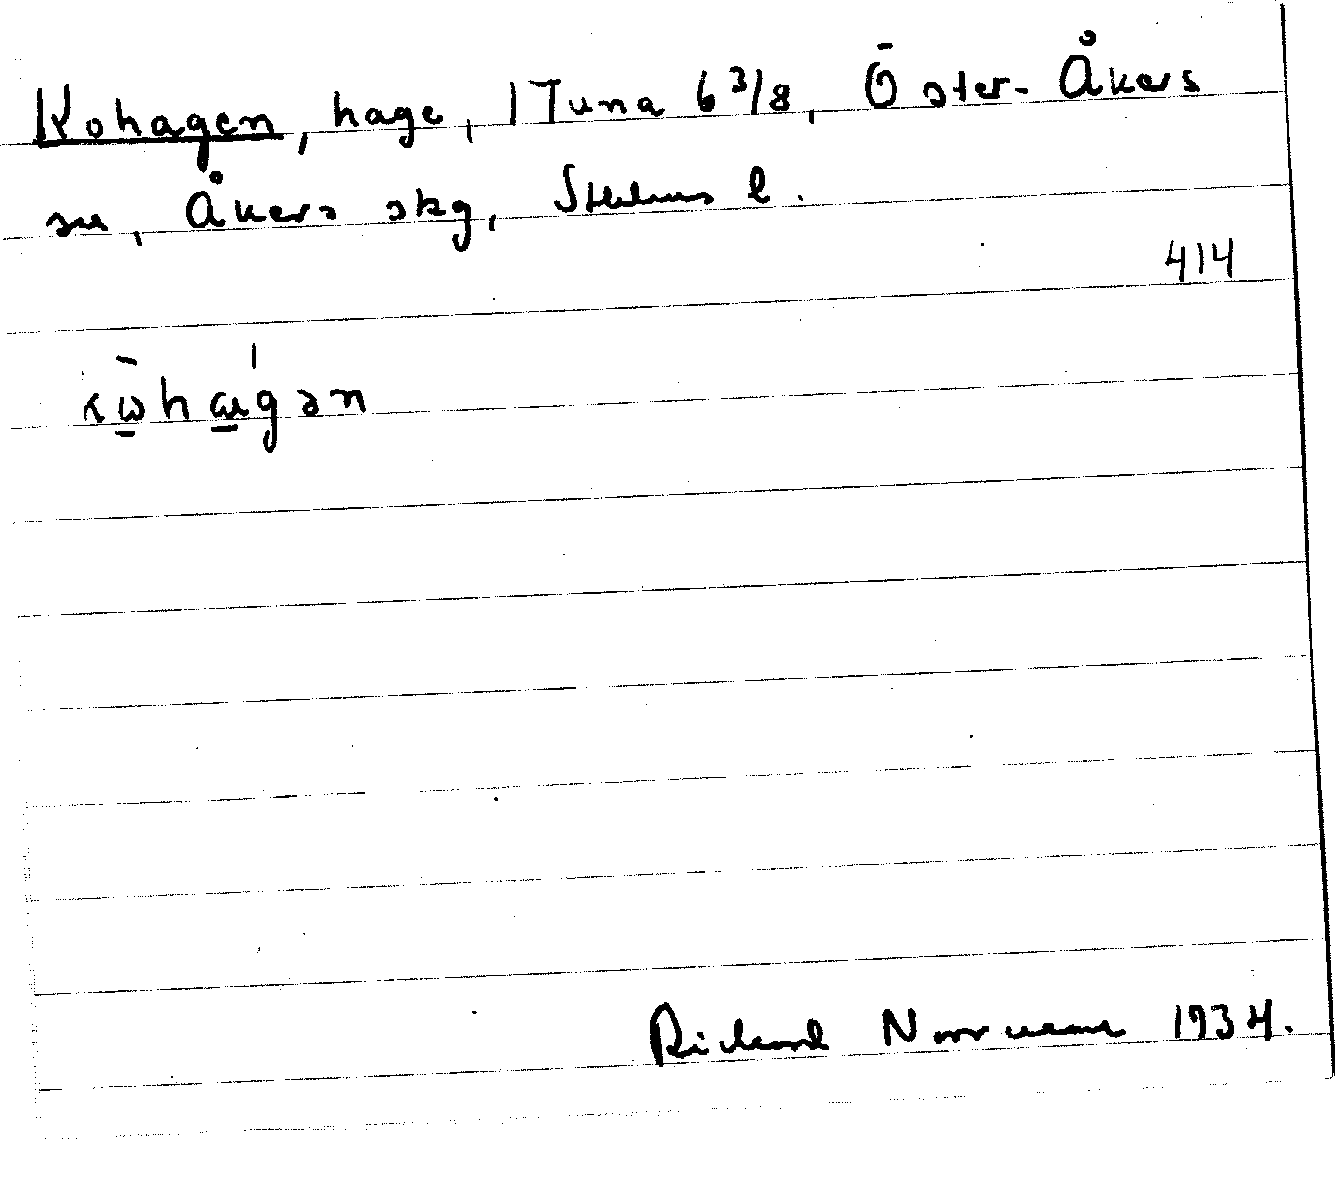 Kohagen, hage, 1 Tuna 6 3/8, Öster-Åkers
sn, Åkers skg, Sthlms l.
414
Richard Norrman 1934.